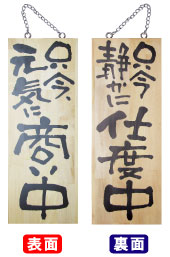 只今、
元気に
商い中
只今
静かに
仕度中
表面
裏面